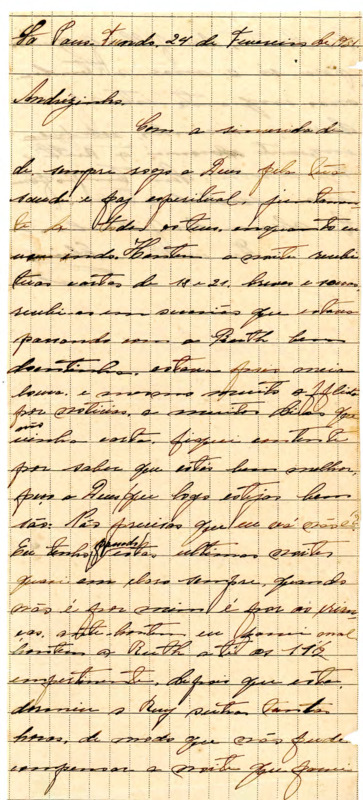 Passo Fundo, 24 de Fevereiro de
Andrézinho.
Com a sinceridade
de sempre rogo a Deus pela tua
saude e paz espiritual, juntamen
te a todos os teus, enquanto eu
vou indo. Hontem a noite recebi
tuas cartas de 18 e 21.
recebi-as em occasião que estava
passando com a Ruth bem
doentinha, estava pois meia
louca e mesmo muito afflicta
por noticias, a muitos dias que
não
vinha carta, fiquei contente
por saber que estás bem melhor,
peço a Deus que logo estejas bem
são. Não precisas que eu vá não é?
Eu tenho passado estas ultimas noites
quasi em claro sempre, quando
não é por mim é por as crian
ças, ante-hontem eu passei mal
hontem a Ruth até as 11½
impertinente, depois que esta
dormiu o Ruy outras tantas
horas, de modo que não pude
compensar a noite que passei